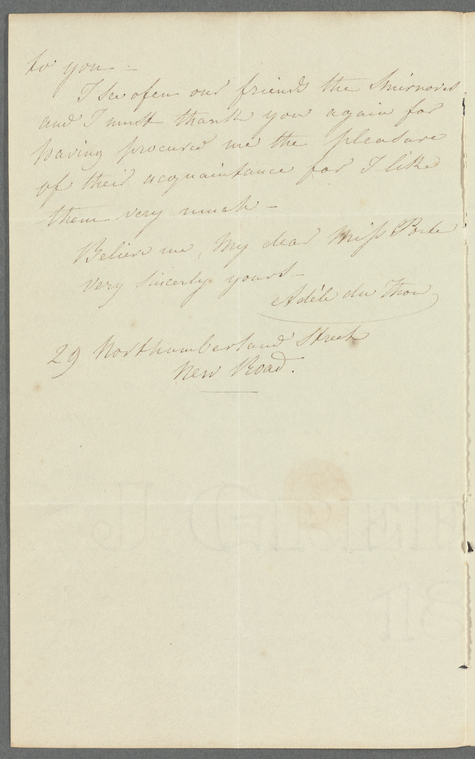 to you -
I see ofen our friends the Smirnoves
and I must thank you again for
having procured me the pleasure
of their acquaintance for I like
them very much -
Believe me, My dear Miss Porte
very sincerely yours -
Adèle du Thou
29 Northumberland Street
New Road.